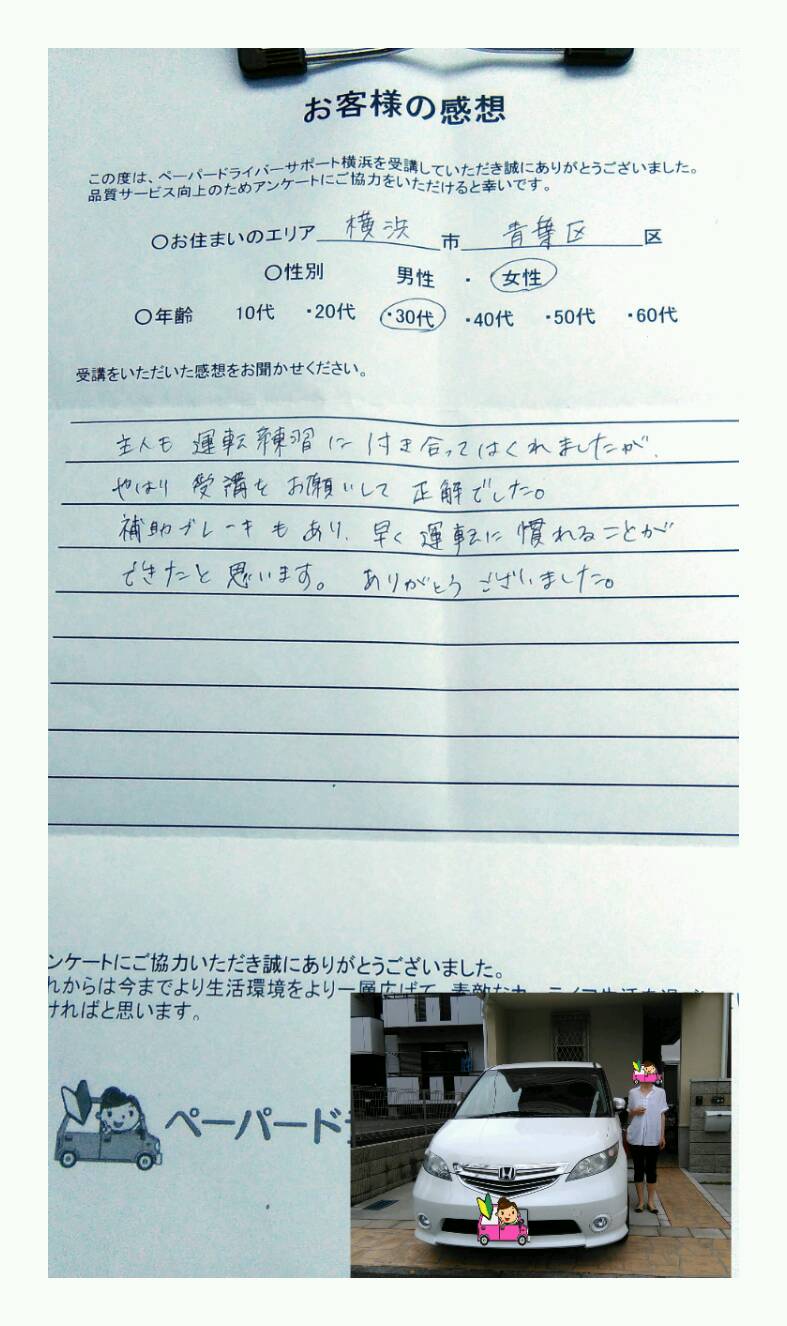 お客様の感想
この度は、ペーパードライバーサポート横浜を受講していただき誠にありがとうございました。
品質サービス向上のためアンケートにご協力をいただけると幸いです。
〇お住まいのエリア 横浜 市 青葉区 区
〇性別 男性 ・ 女性
〇年齢 10代 ・20代 ・30代 ・40代 ・50代 ・60代
受講をいただいた感想をお聞かせください。
主人も運転練習に付き合ってはくれましたが、
やはり受講をお願いして正解でした。
補助ブレーキもあり、早く運転に慣れることが
できたと思います。ありがとうございました。
ンケートにご協力いただき誠にありがとうございました。
れからは今までより生活環境をより一層広げて、素敵なカーライフ生活を
ければと思います。
ペーパード